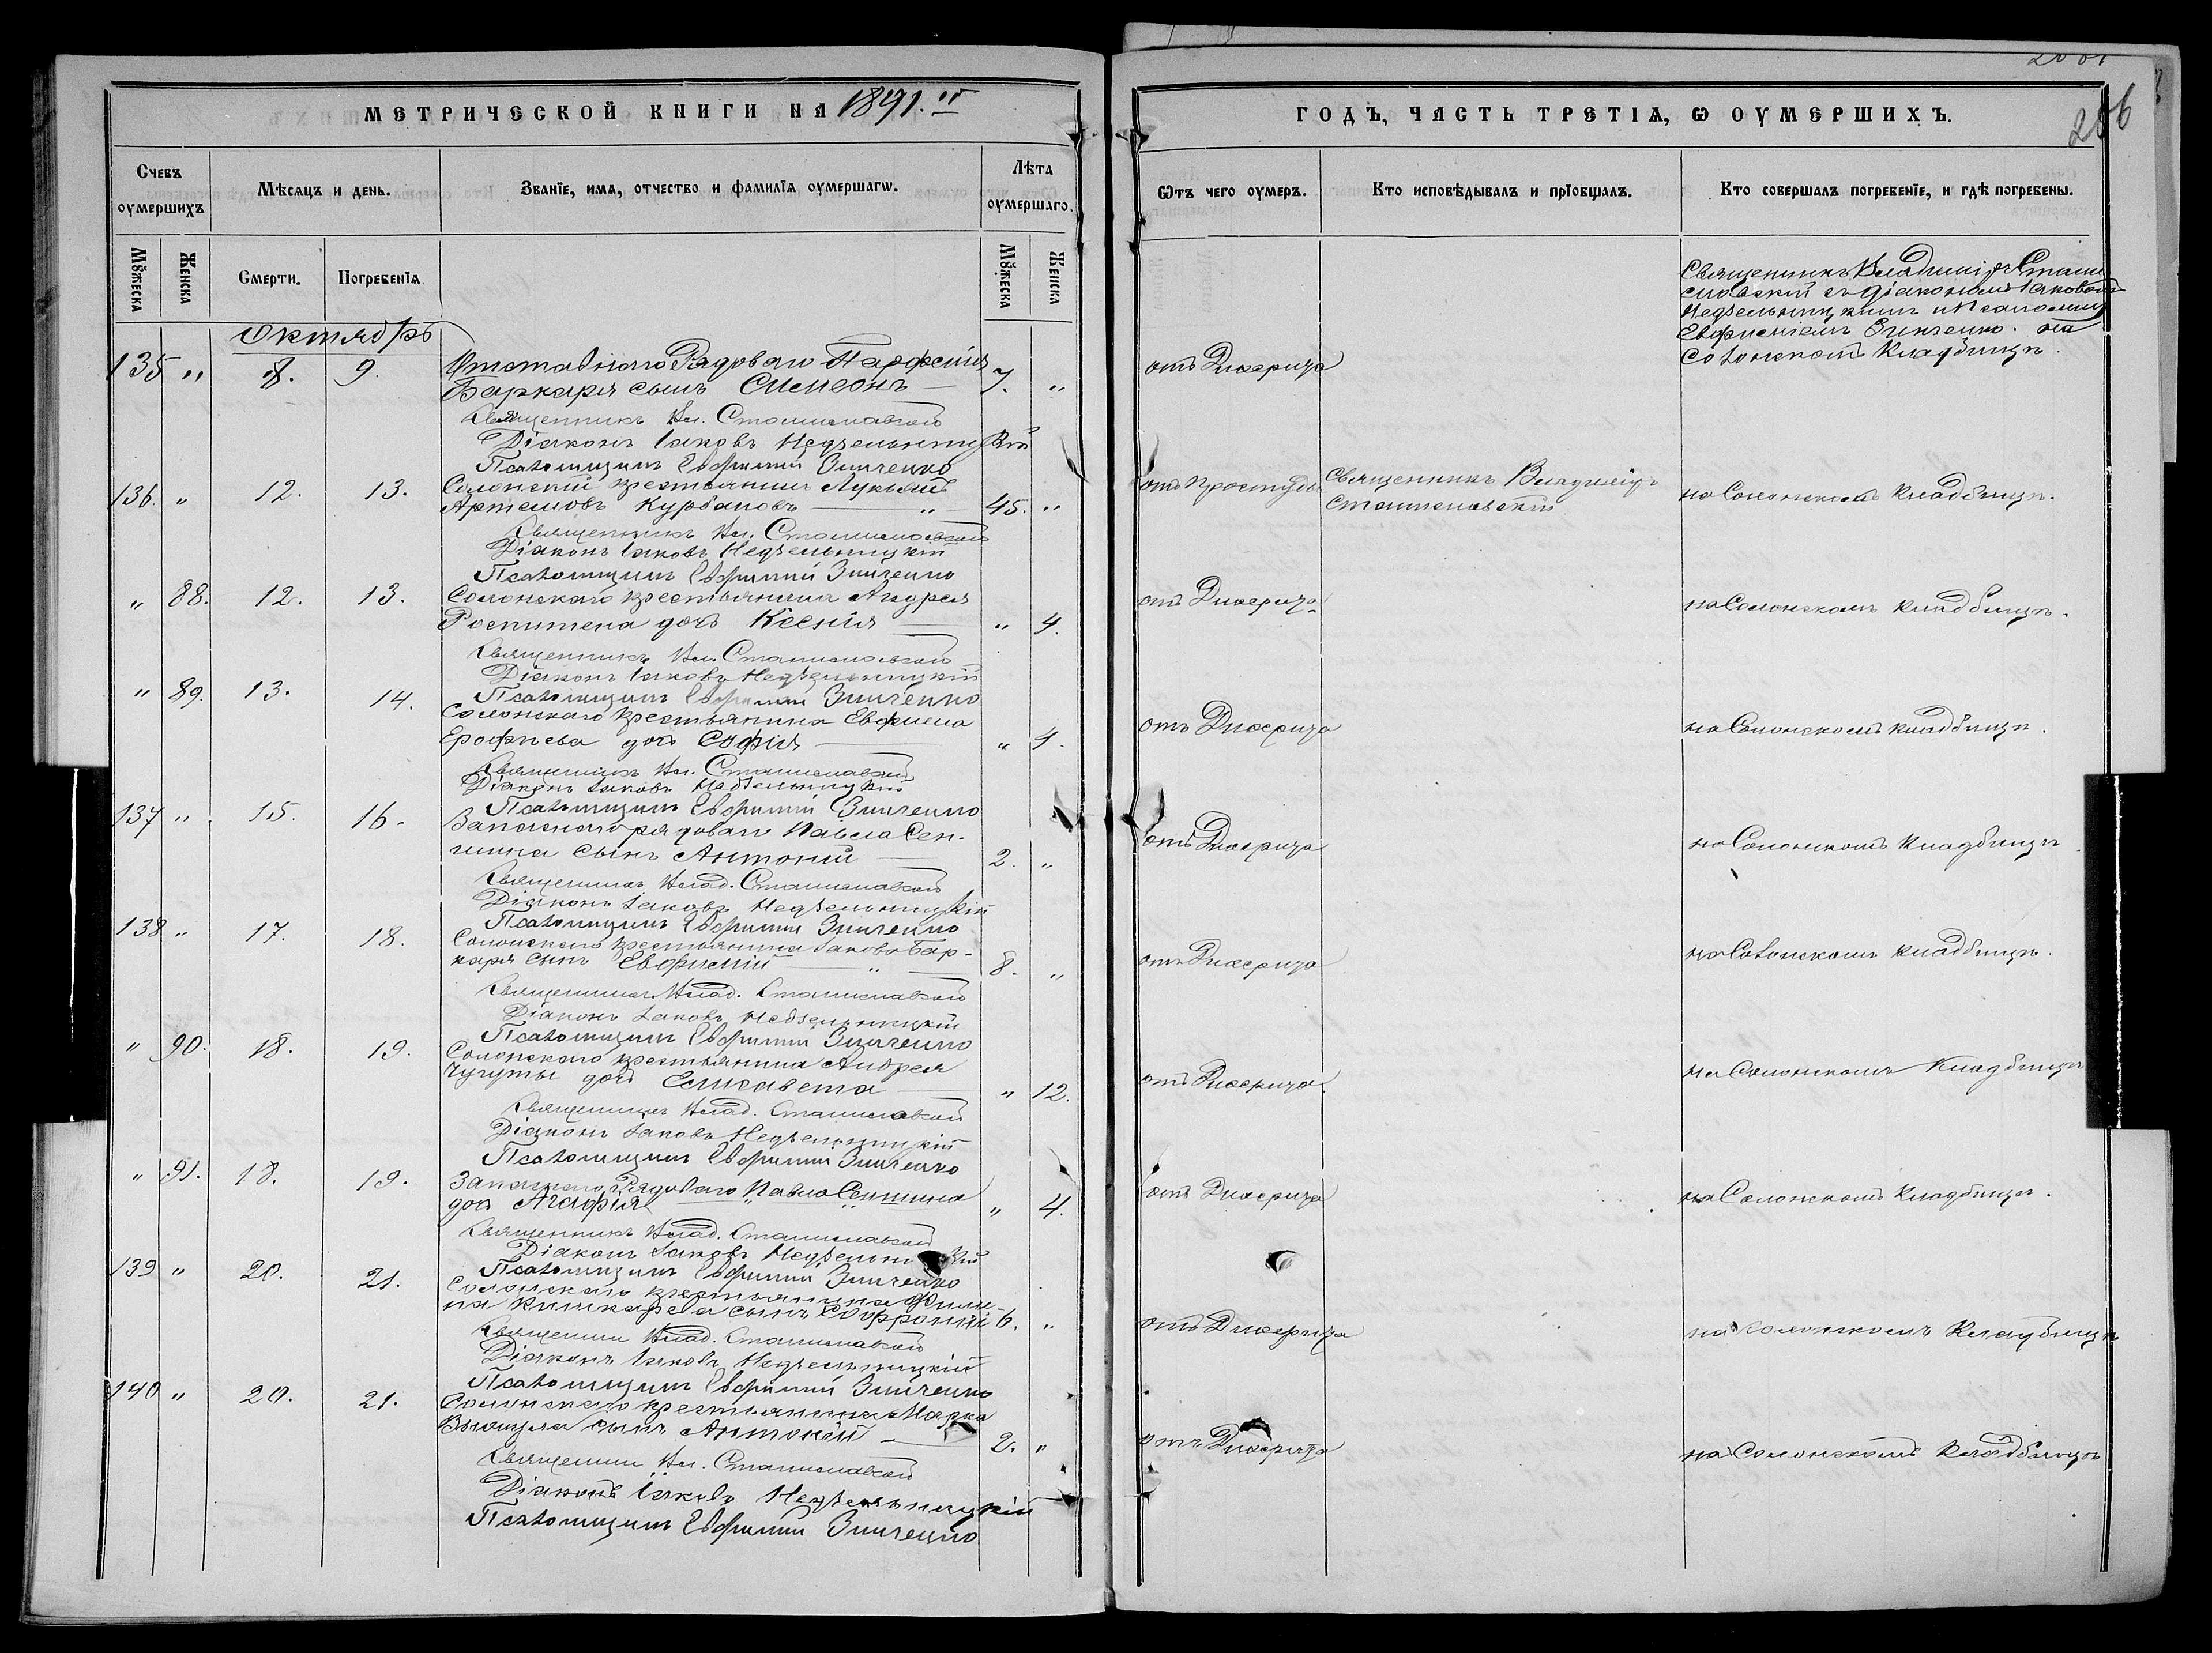 МЕТРИЧЕСКОЙ КНИГИ НА 1891.й
Счевъ оумершихъ
Мѣсяцъ и день.
Званїе, имя, отчество и фамилїя оумершагѡ.
Лѣта оумершаго.
Мꙋжеска
Женска
Смерти.
Погребенїя
Мꙋжеска
Женска
Октябрь
135 " 8. 9. Отставного Рядоваго Парфенія
Баркаря сынъ Симеонъ — 7. "
Священникъ Вл. Станиславскій
Діаконъ Іаковъ Недзельницкій
Псаломщикъ Евфимій Зинченко
136. " 12. 13. Солонскій крестьянинъ Лукьянъ
Артемовъ Курбановъ — " 45. "
Священникъ Вл. Станиславскій
Діаконъ Іаковъ Недзельницкій
Псаломщикъ Евфимій Зинченко
" 88. 12. 13. Солонскаго крестьянина Андрея
дочь Ксенія — " 4.
Священникъ Вл. Станиславскій
Діаконъ Іаковъ Недзельницкій
Псаломщикъ Евфимій Зинченко
" 89. 13. 14. Солонскаго крестьянина Евфима
Ерофѣева дочь Софія — " 4.
Священникъ Вл. Станиславскій
Діаконъ Іаковъ Недзельницкій
Псаломщикъ Евфимій Зинченко
137 " 15. 16. Запаснаго рядоваго Павла Сен-
шина сынъ Антоній — 2. "
Священникъ Влад. Станиславскій
Діаконъ Іаковъ Недзельницкій
Псаломщикъ Евфимій Зинченко
138 " 17. 18. Солонскаго крестьянина Іакова Бар-
каря сынъ Евфимій — " 8. "
Священникъ Влад. Станиславскій
Діаконъ Іаковъ Недзельницкій
Псаломщикъ Евфимій Зинченко
" 90. 18. 19. Солонскаго крестьянина Андрея
Чучуты дочь Елисавета — " 12.
Священникъ Влад. Станиславскій
Діаконъ Іаковъ Недзельницкій
Псаломщикъ Евфимій Зинченко
" 91. 18. 19. Запаснаго Рядоваго Павла Сеншина
дочь Агафія — " 4.
Священникъ Влад. Станиславскій
Діаконъ Іаковъ
Псаломщикъ Евфимій Зинченко
139 " 20. 21. Солонскаго крестьянина Филип-
па сынъ Софроній 6. "
Священникъ Влад. Станиславскій
Діаконъ Іаковъ Недзельницкій
Псаломщикъ Евфимій Зинченко
140 " 20. 21. Солонскаго крестьянина Марка
сынъ Антоній — 2. "
Священникъ Вл. Станиславскій
Діаконъ Іаковъ Недзельницкій
Псаломщикъ Евфимій Зинченко
ГОДЪ, ЧАСТЬ ТРЕТІѦ, Ѡ ОУМЕРШИХЪ.
206
Ѿтъ чего оумеръ.
Кто исповѣдывалъ и прїобщалъ.
Кто совершалъ погребенїе, и гдѣ погребены.
Священникъ Владиміръ Стани
славскій съ діакономъ Іаковомъ
Недзельницкимъ и Псаломщ
Евфиміемъ Зинченко. на
Солонскомъ Кладбищѣ.
отъ Дифтерита
отъ простуды Священникъ Владиміръ на Солонскомъ кладбищѣ.
Станиславскій
отъ Дифтерита на Солонскомъ кладбищѣ.
отъ Дифтерита на Солонскомъ кладбищѣ.
отъ Дифтерита на Солонскомъ Кладбищѣ
отъ Дифтерита на Солонскомъ кладбищѣ.
отъ Дифтерита. на Солонскомъ Кладбищѣ
отъ Дифтерита на Солонскомъ Кладбищѣ.
отъ Дифтерита на Солонскомъ Кладбищѣ
отъ Дифтерита на Солонскомъ Кладбищѣ